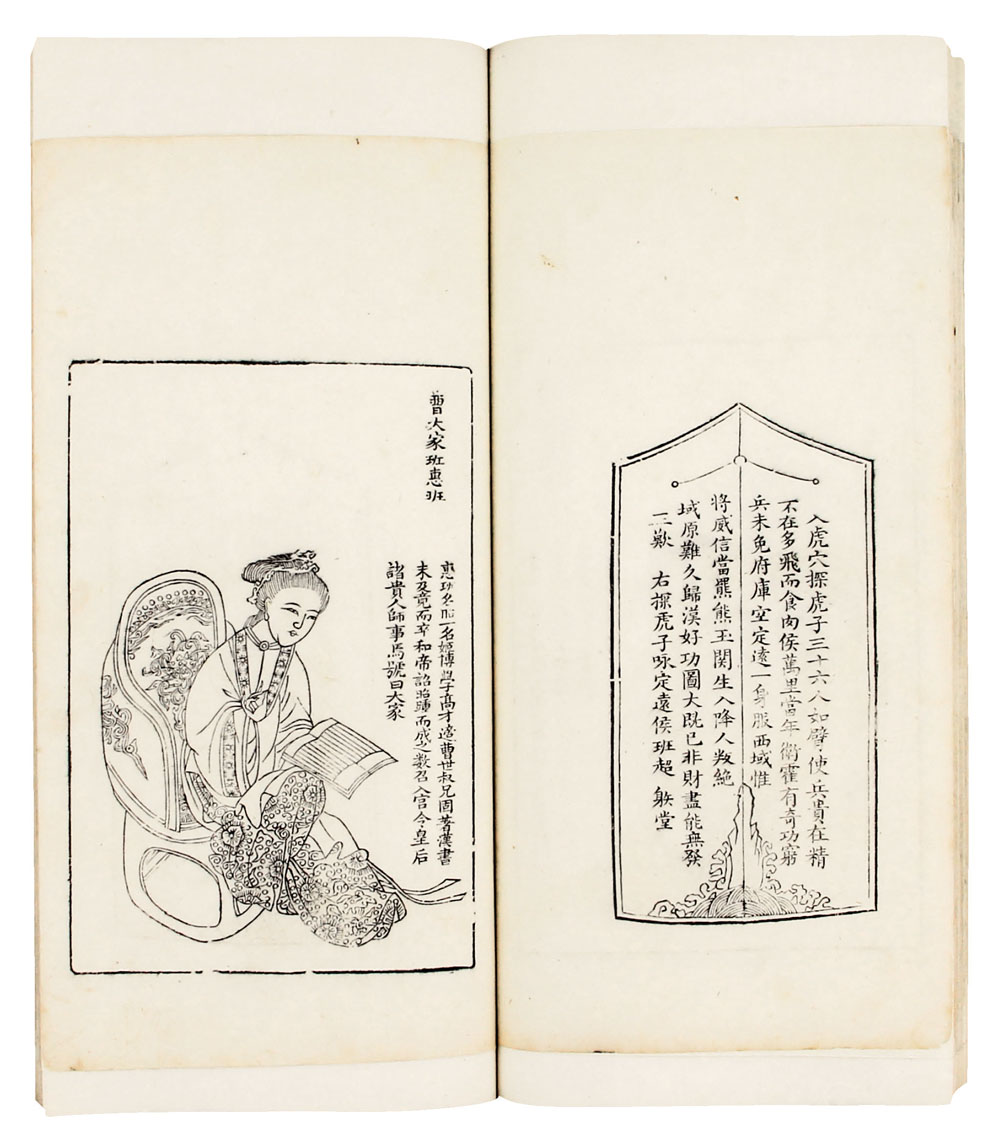 入虎穴探虎子三十六人如臂使兵貴在精
不在多飛而食肉侯萬里當年衛霍有奇功窮
兵未免府庫空定遠一身服西域惟
將威信當羆熊玉関生入降人叛絶
域原難久歸漢好功圖大旣已非財盡能無發
三歎 右探虎子咏定遠侯班超 堂
曹大家班惠班
惠班名昭一名姬博學高才適曹世叔兄固著漢書
未及竟而卒和帝詔昭踵而成之數召入宫令皇后
諸貴人師事焉號曰大家